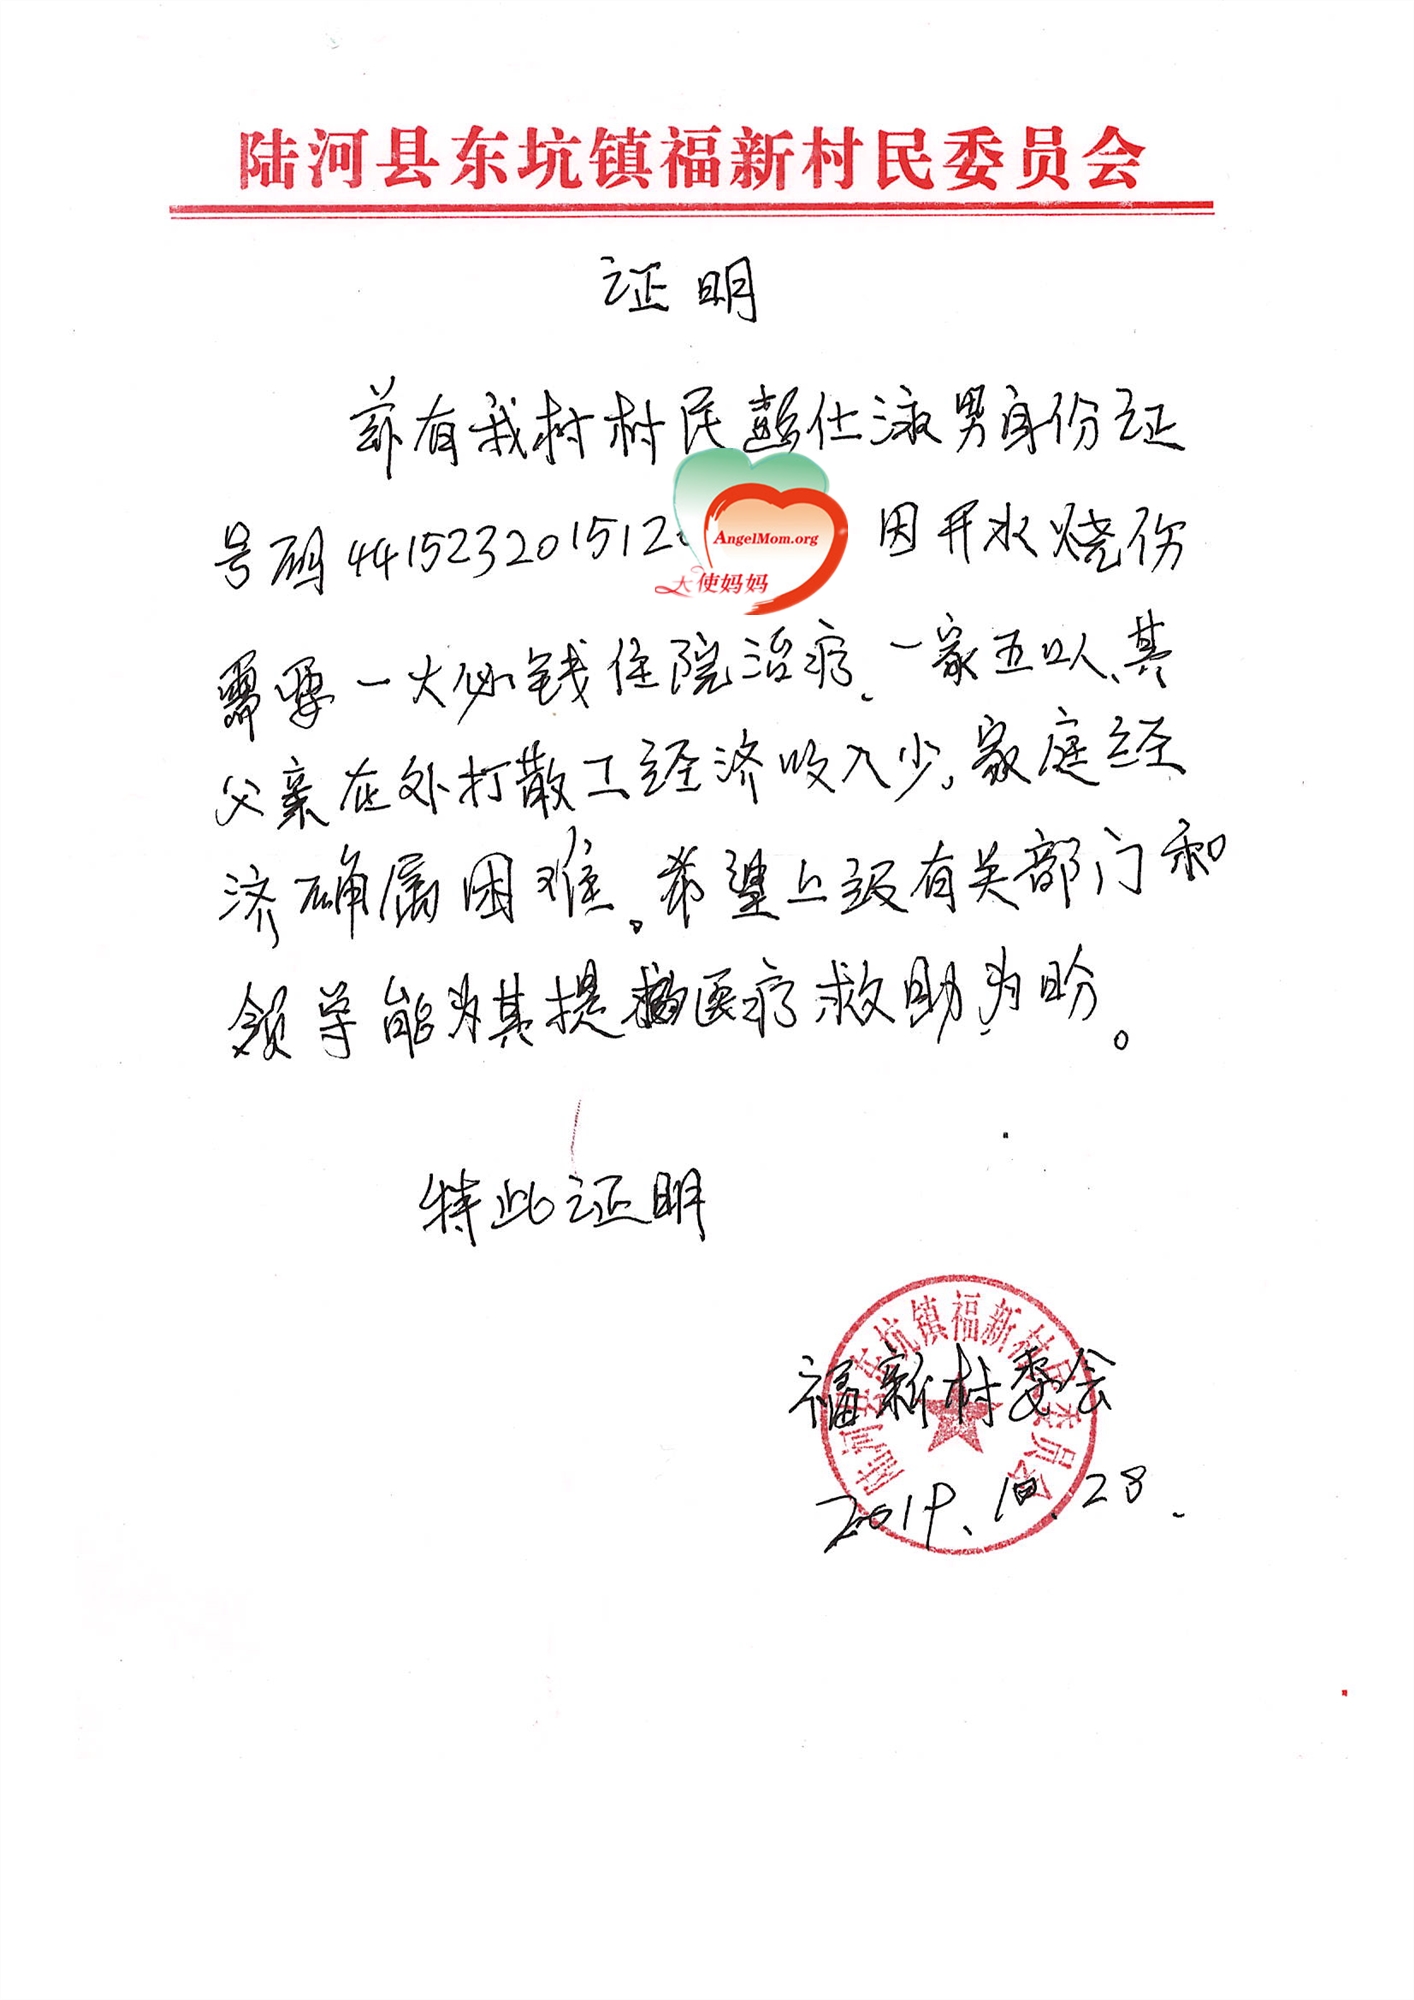 陆河县东坑镇福新村民委员会
证明
兹有我村村民彭仕淑男身份证
号码441523201512
AngelMom.org
天使妈妈
因开水烧伤
需要一大必钱住院治疗、一家五口人、其
父亲在外打散工经济收入少、家庭经
济确属困难。希望上级有关部门和
领导能为其提供医疗救助为盼。
特此证明
陆河县东坑镇福新村民委员会
福新村委会
2019.10.28.